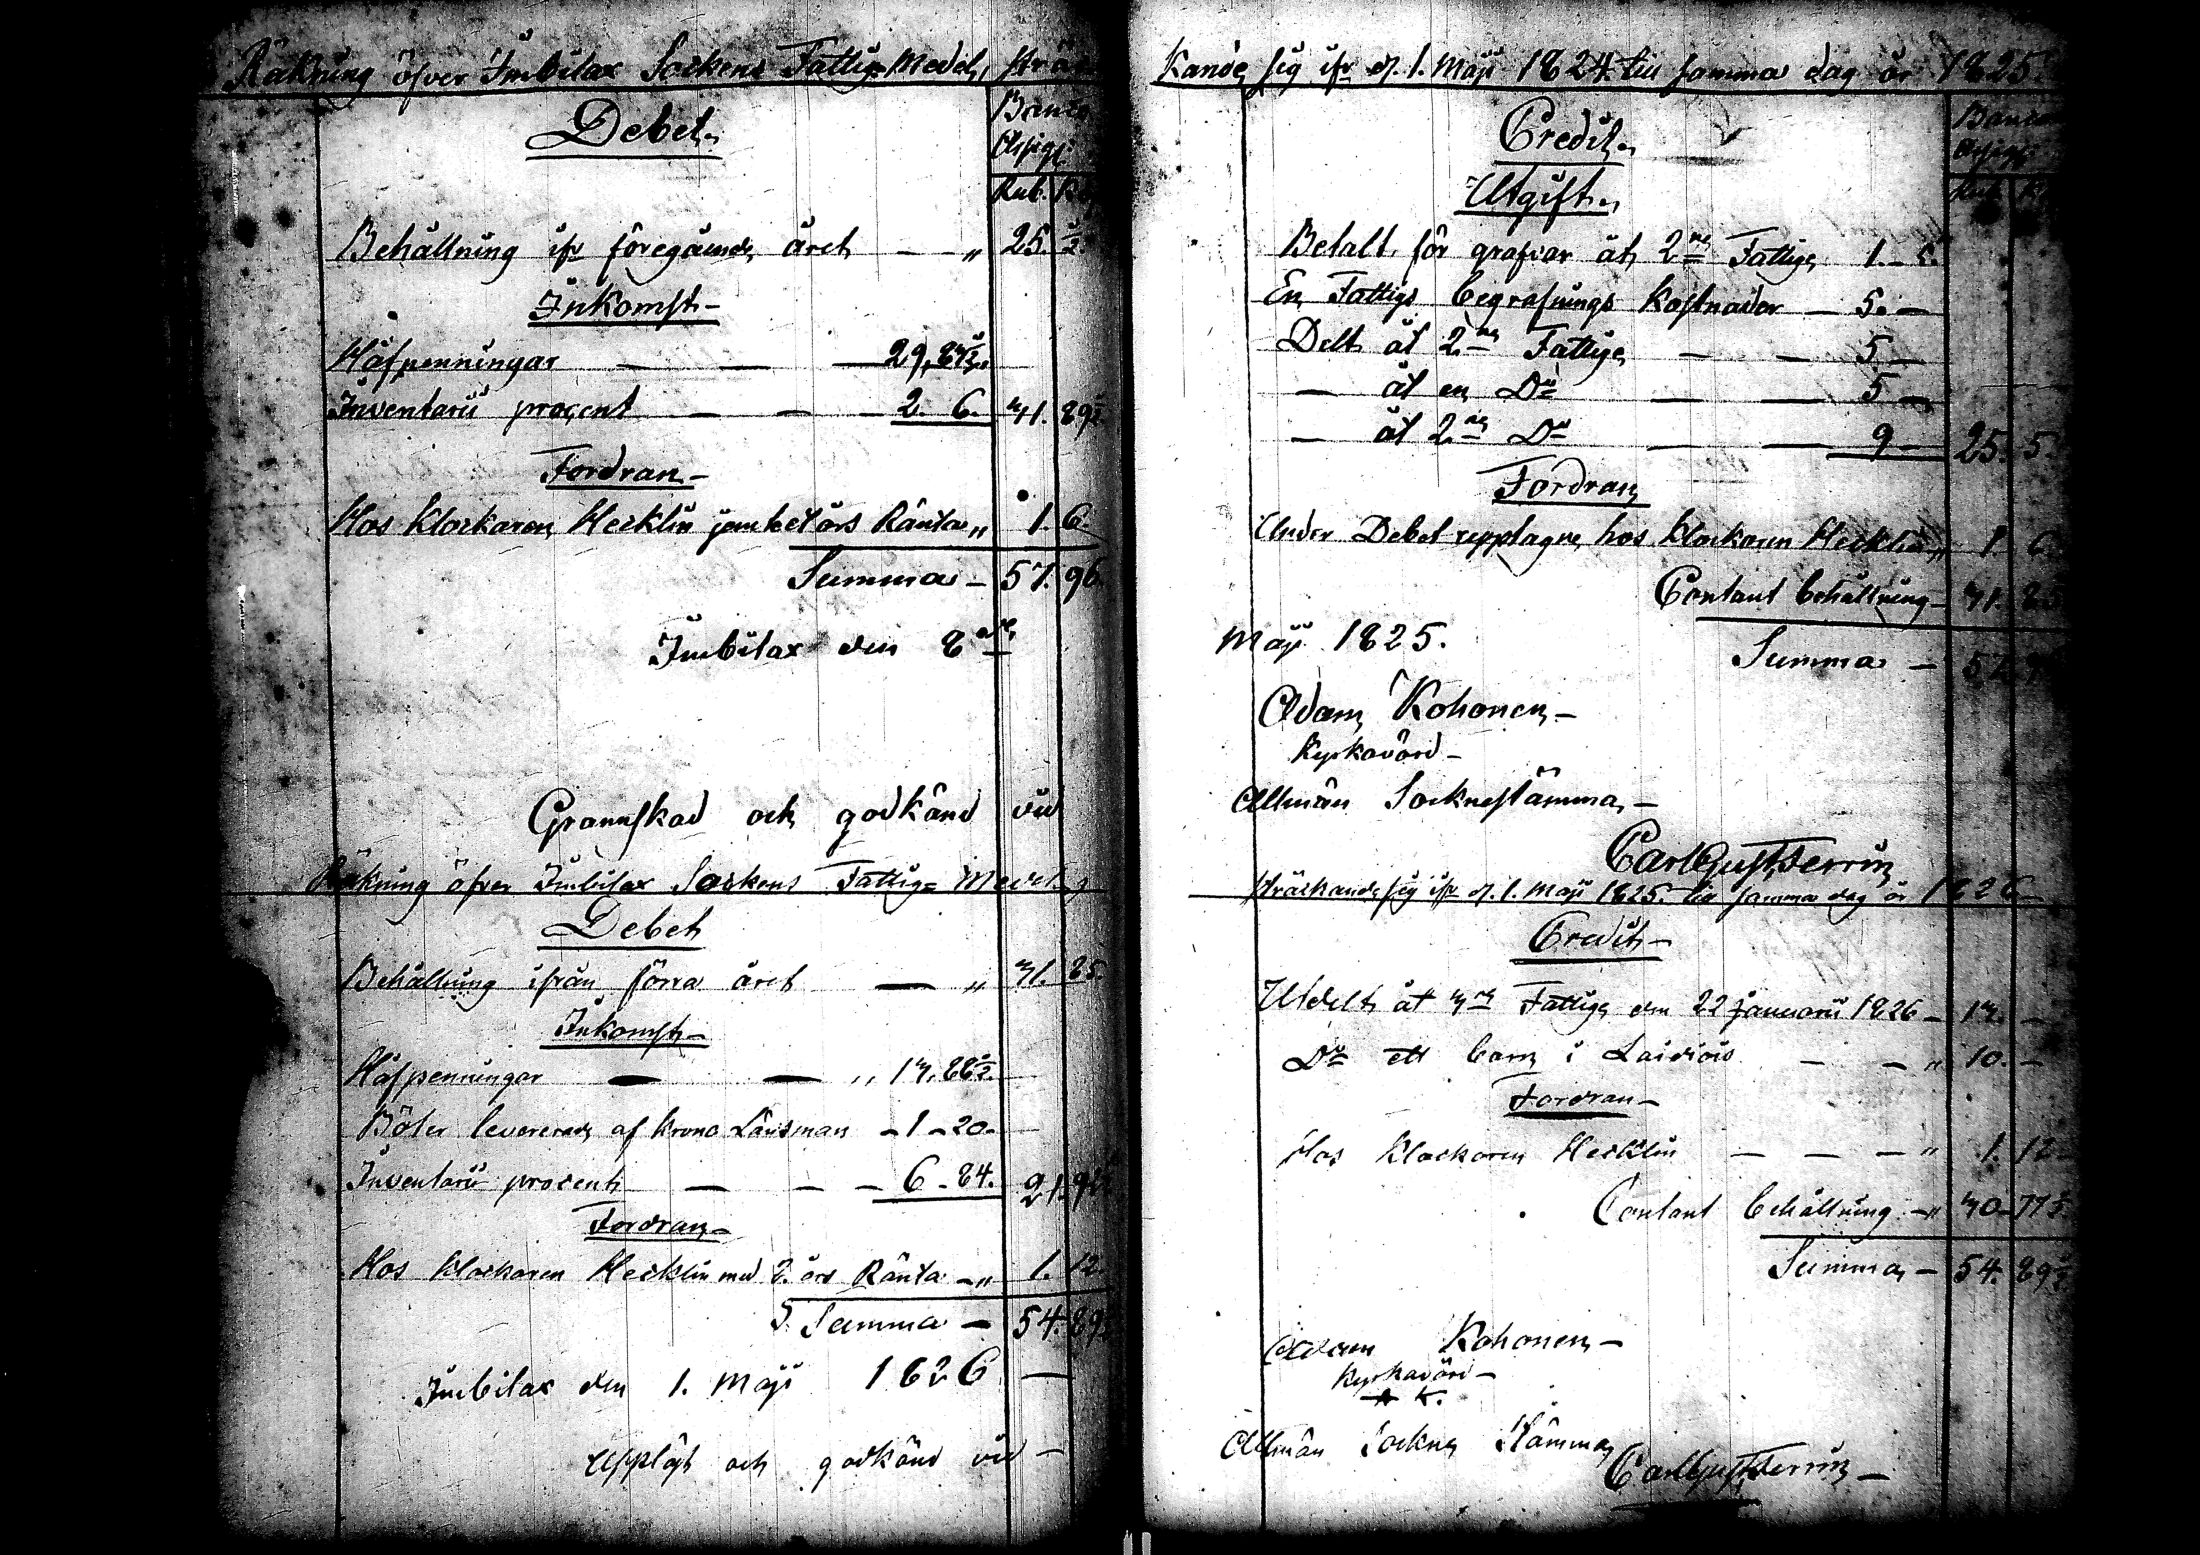 Räkning öfver Imbilax Sockens Fattig Medel, sträc
Debet
Banco
Assign:
Rub. K
Behållning ifr föregående året — — „ 25.
Inkomst
Håfpenningar — — — 29. 83½.
Inventarii procent — — — 2. 6. 31. 89½
Fordran
Hos Klockaren Hecklin jemte et års Ränta „ 1. 6.
Summa — 57. 96.
Imbilax den 8de
Grannskad och godkänd vid
Räkning öfver Imbilax Sockens Fattig- Medel
Debet
Behållning ifrån förra året — „ 31. 85.
Inkomst
Håfpenningar — — „ 13. 88½.
Böter levererade af Krono Länsman - 1 - 20 -
Inventarii procent — — — 6 - 84. 21. 92
Fordran
Hos Klockaren Hecklin med 2. års Ränta — „ 1. 12.
Summa — 54. 89½
Imbilax den 1. Maji 1826 —
Upplöst och godkänd vid —
Kande sig ifr d. 1. Maji 1824 till samma dag år 1825
Credit
Utgift
Banco
Assign:
Rub.
Betalt för grafvar åt 2ne Fattige 1. - 5.
En Fattigs begrafnings Kostnader — 5. —
Delt åt 2ne Fattige — — 5 —
— åt en Do — — 5 —
— åt 2ne Do — — 9 — 25. 5.
Fordran
Under Debet upptagne hos Klockaren Hecklin „ 1. 6.
Contant behållning — 31. 85
Maji 1825.
Summa — 57. 96
Adam Kohonen —
Kyrkovärd —
Allmän Socknestämma, —
Carl Gust. Ferrin
sträckande sig ifr d. 1. Maji 1825. till samma dag år 1826
Credit
Utdelt åt 3ne Fattige den 22 Januarii 1826 — 13. —
Do ett barn i Laidiois — — „ 10. —
Fordran
Hos Klockaren Hecklin — — — „ 1. 12
Contant behållning — „ 30. 77½.
Summa — 54. 89½.
Adam Kohonen —
Kyrkovärd —
A K.
Allmän Sockne Stämma
Carl Gust. Ferrin —